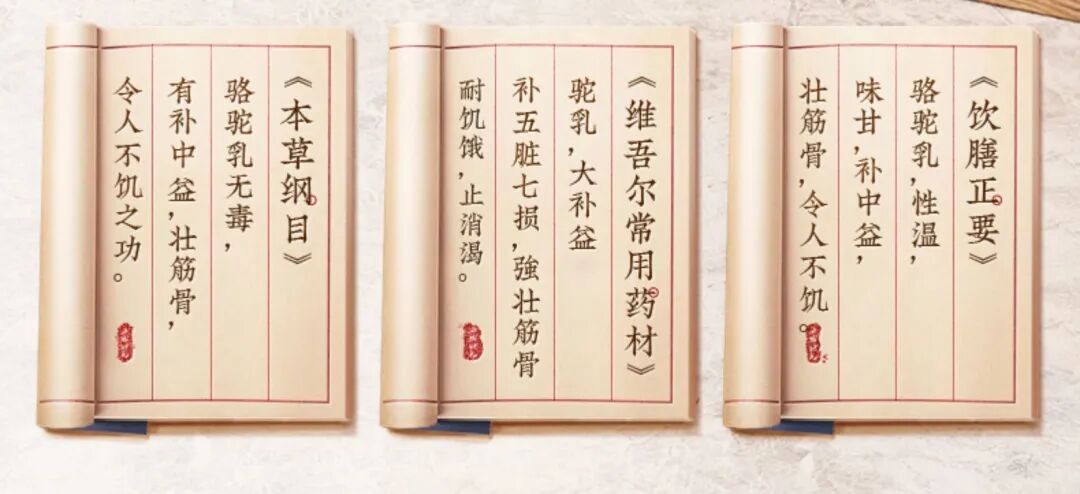 《本草纲目》
骆驼乳无毒，
有补中益，壮筋骨，
令人不饥之功。
《维吾尔常用药材》
驼乳，大补益
补五脏七损，強壮筋骨
耐饥饿，止消渴。
《饮膳正要》
骆驼乳，性温，
味甘，补中益，
壮筋骨，令人不饥。